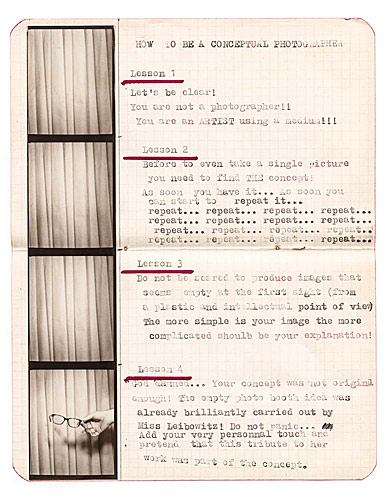 HOW TO BE A CONCEPTUAL PHOTOGRAPHER
Lesson 1
Let's be clear!
You are not a photographer!!
You are an ARTIST using a medium!!!
Lesson 2
Before to even take a single picture
you need to find THE concept!
As soon you have it... As soon you
can start to repeat it...
repeat... repeat... repeat... repeat...
repeat... repeat... repeat... repeat...
repeat... repeat... repeat... repeat...
repeat... repeat... repeat... repeat...
Lesson 3
Do not be scared to produce images that
seems empty at the first sight (from
a plastic and intellectual point of view)
The more simple is your image the more
complicated shoulb be your explanation!
Lesson 4
God damned... Your concept was not original
enough! The empty photo booth idea was
already brilliantly carried out by
Miss Leibowitz! Do not panic...
Add your very personnal touch and
pretend that this tribute to her
work was part of the concept.